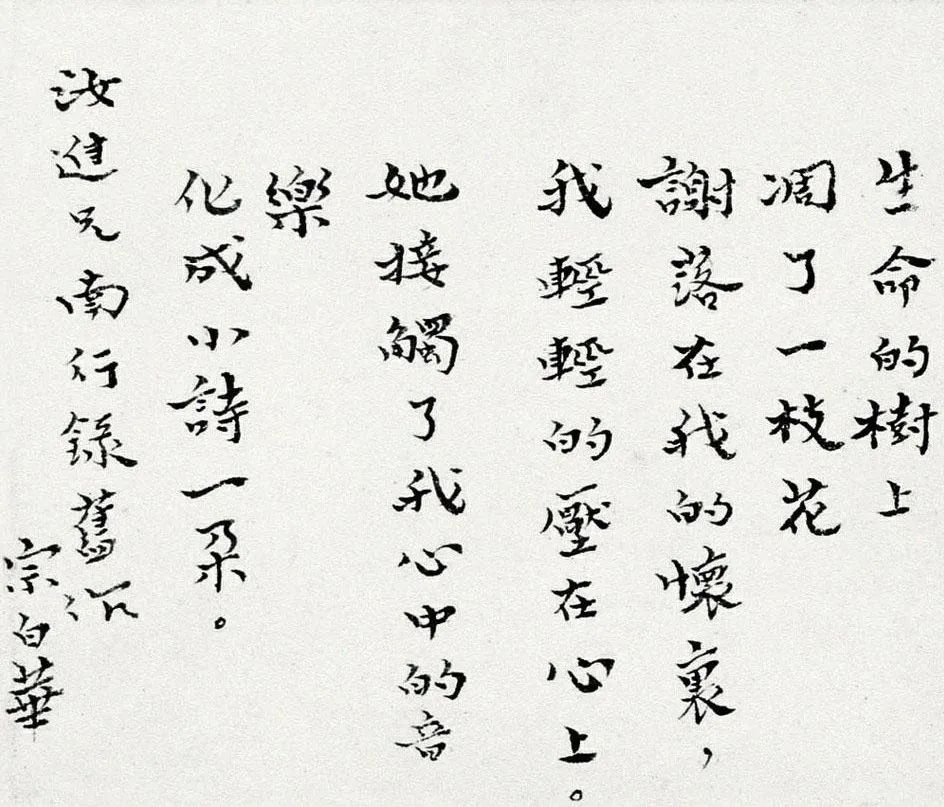 生命的樹上
凋了一枝花
謝落在我的懷裏，
我輕輕的壓在心上。
她接觸了我心中的音
樂
化成小詩一朵。
汝進兄南行錄舊作
宗白華